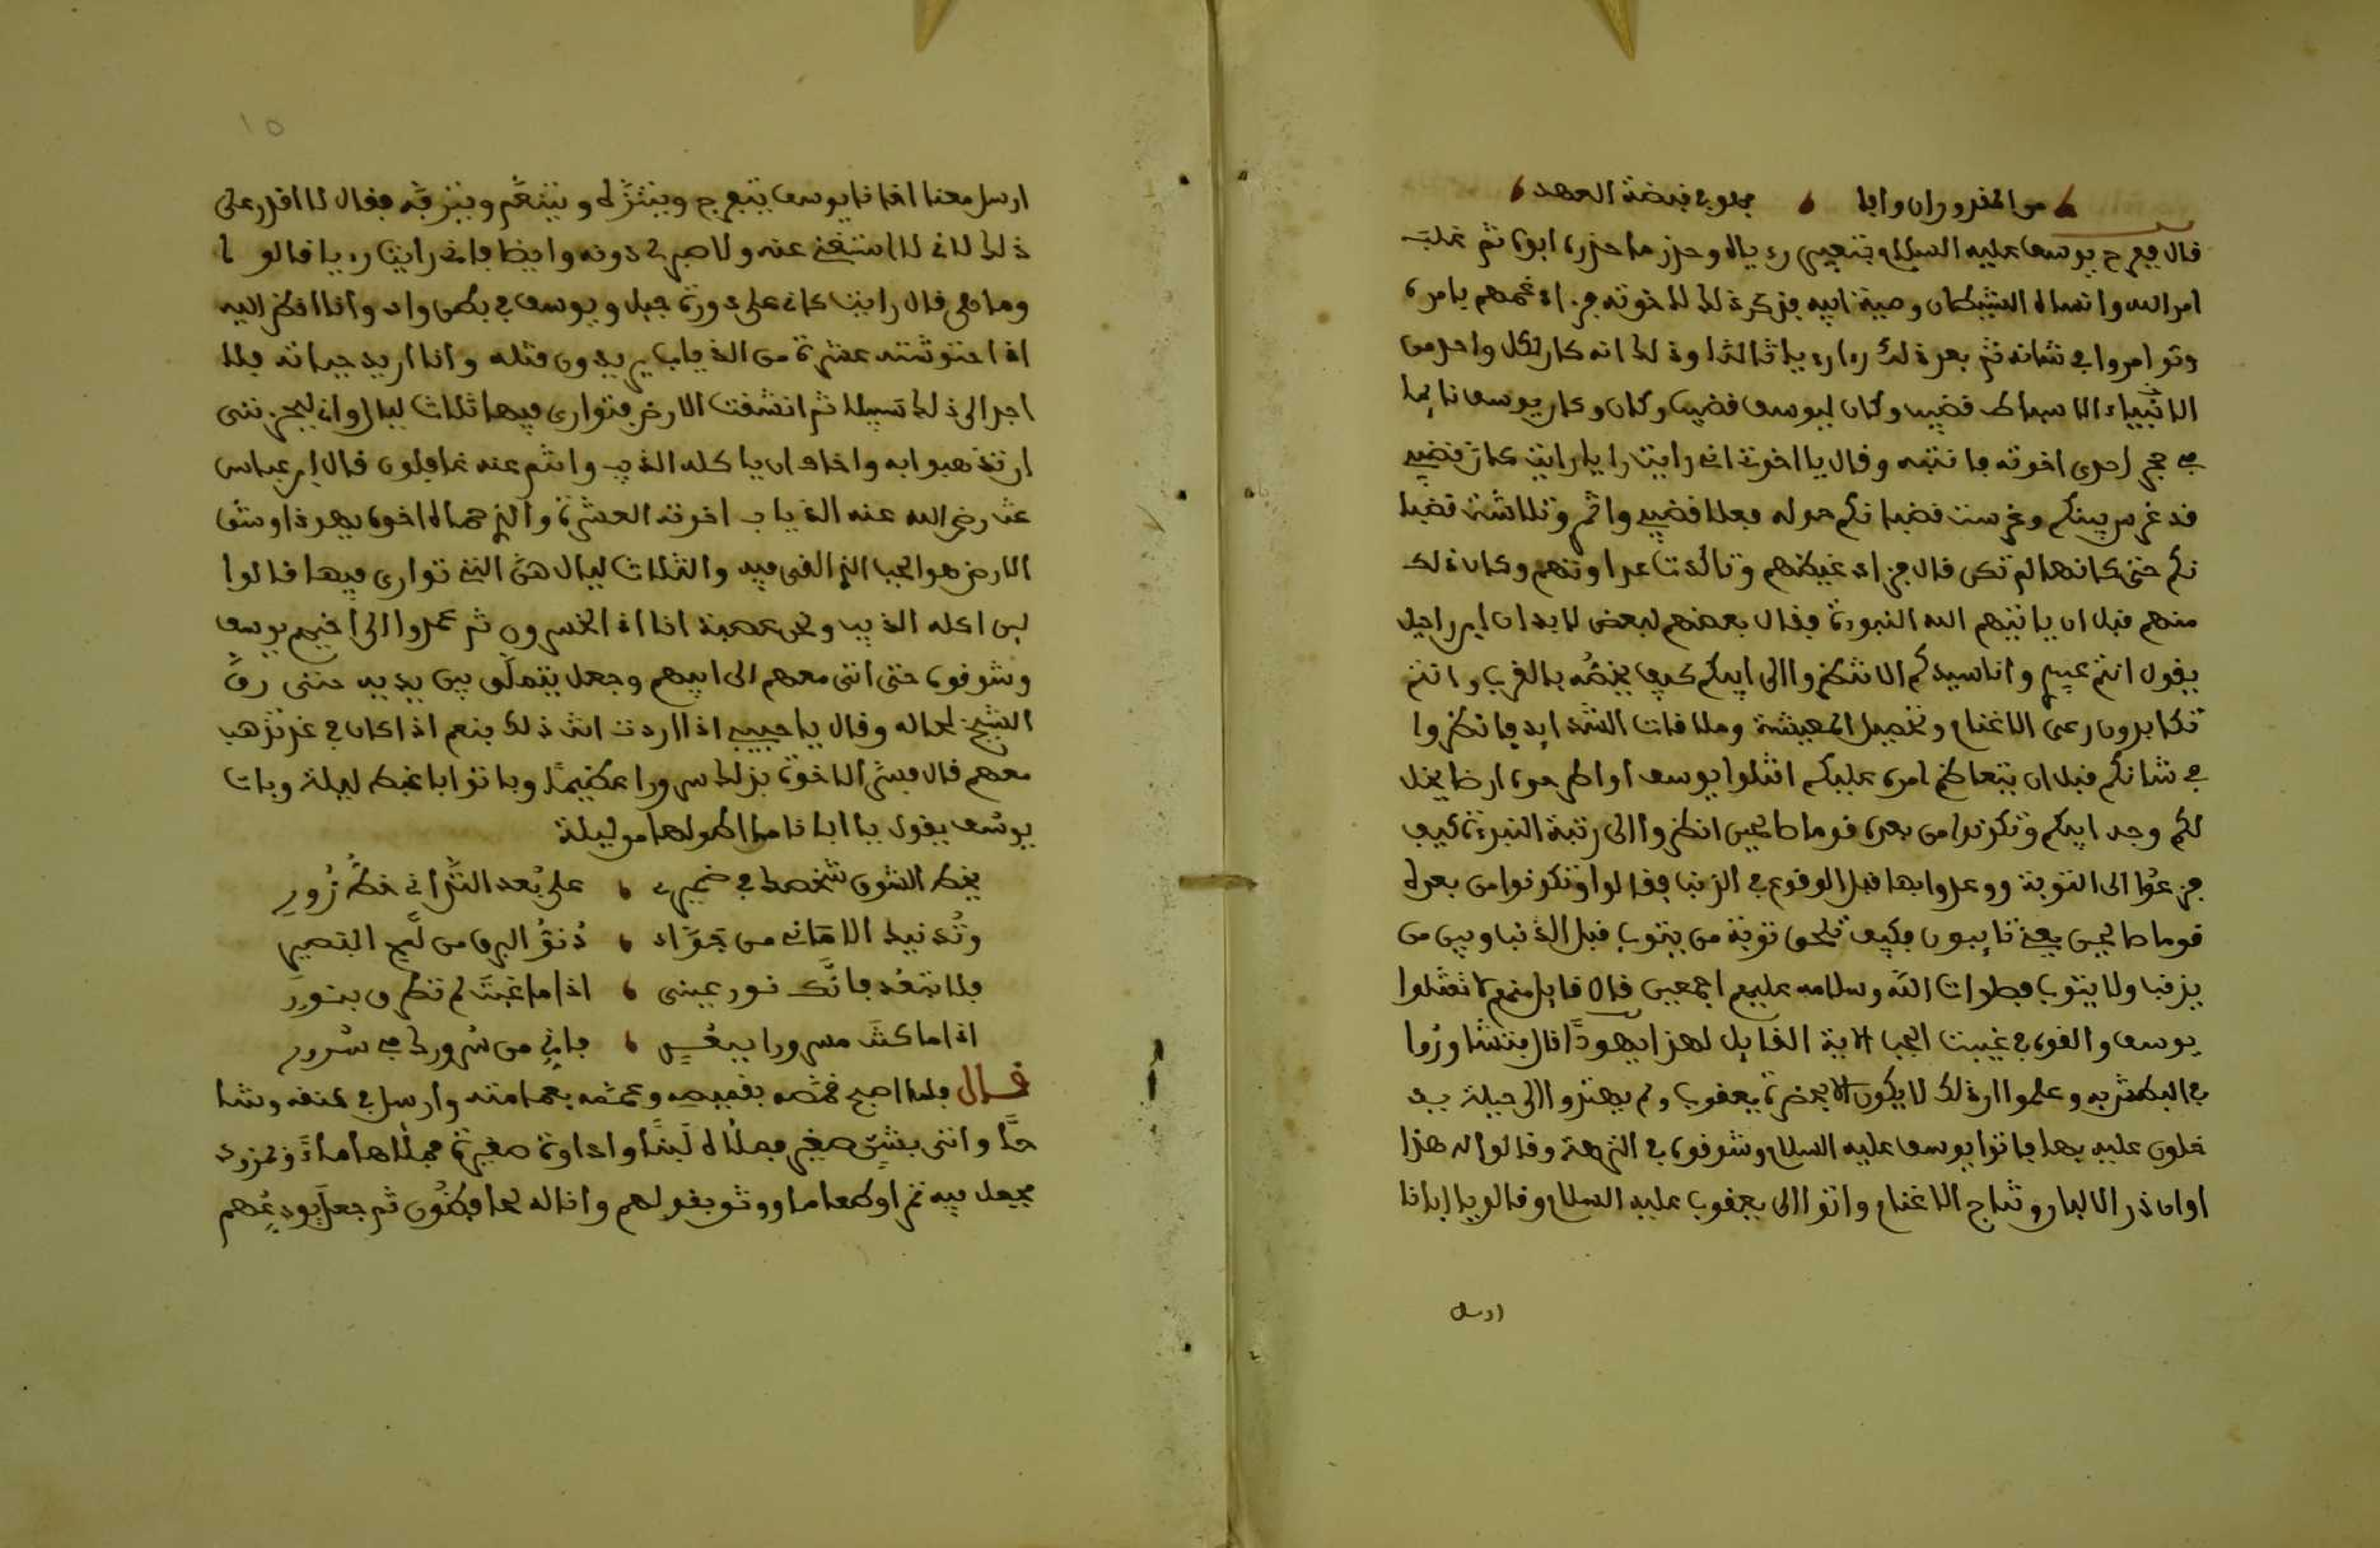 من المقدوران وافا ، يجلوبي قبضة العهد ،
قال فعرح يوسف عليه السلام بتعبير رءياه وحذر ما حذره ابوه ثم غلب
امر الله وانساه الشيطان وصية ابيه فذكر ذلك لاخوته فزاد غمهم بامره
وتوامروا في شانه ثم بعد ذلك راى رءيا ثالثا وذلك انه كان لكل واحد من
الانبياء الاسباط قضيب وكان ليوسف قضيب وكان وكان يوسف نايما
في حجر احدى اخوته فانتبه وقال يا اخوتي اني رايت رايا رايت كان قضيبي
قد غرس بينكم وغرست قضبانكم حوله فعلا قضيبي واثمر وتلاشت قضبا
نكم حتى كانها لم تكن قال فزاد غيظهم وتاكدت عداوتهم وكان ذلك
منهم قبل ان ياتيهم الله النبوة فقال بعضهم لبعض لا بد ان ابن راحيل
يقول انتم عبيدي وانا سيدكم الا تنظروا الى ابيكم كيف يخصه بالقرب وانتم
تكابدون رعى الاغنام وتحصيل المعيشة وملاقات الشدايد فانظروا
في شانكم قبل ان يتعاظم امره عليكم اقتلوا يوسف او اطرحوه ارضا يخل
لكم وجه ابيكم وتكونوا من بعده قوما صالحين انظروا الى رتبة النبوءة كيف
فزعوا الى التوبة ووعدوا بها قبل الوقوع في الذنب فقالوا وتكونوا من بعده
قوما صالحين يعني تايبون فكيف تلحق توبة من يتوب قبل الذنب وبين من
يذنب ولا يتوب فصلوات الله وسلامه عليهم اجمعين قال قايل منهم لا تقتلوا
يوسف والقوه في غيبت الجب الاية القايل لهذا يهودا قال فتشاوروا
في البطش به وعلموا ان ذلك لا يكون الا بحضرة يعقوب ولم يهتدوا الى حيلة يد
خلون عليه بها فاتوا يوسف عليه السلام وشوقوه في النزهة وقالوا له هذا
اوان ذر الالبان ونتاج الاغنام واتوا الى يعقوب عليه السلام وقالوا يا ابانا
ارسل
١٥
ارسل معنا اخانا يوسف يتفرج ويتنزه ويتنعم ويتزفه فقال لا اقدر على
ذلك لاني لا استغني عنه ولا صبر لي دونه وايضا فاني رايت رءيا قالوا
وما هي قال رايت كاني على ذورة جبل ويوسف في بطن واد وانا انظر اليه
اذا احتوشته عشرة من الذياب يريدون قتله وانا اريد حياته فلا
اجد الى ذلك سبيلا ثم انشقت الارض فتوارى فيها ثلاث ليال واني ليحزنني
ان تذهبوا به واخاف ان ياكله الذيب وانتم عنه غافلون قال ابن عباس
رضي الله عنه الذياب اخوته العشرة والذي حماه اخوه يهوذا وشق
الارض هو الجب الذي القى فيه والثلاث ليال هي التي توارى فيها قالوا
لين اكله الذيب ونحن عصبة انا اذا لخسرون ثم عمدوا الى اخيهم يوسف
وشوقوه حتى اتى معهم الى ابيهم وجعل يتملق بين يديه حتى رق
الشيخ لحاله وقال يا حبيبي اذا اردت انت ذلك بنعم اذا كان في غد نذهب
معهم قال فبشر الاخوة بذلك سرورا عظيما وباتوا باغبط ليلة وبات
يوسف يقول يا ابانا ما اطولها من ليلة
يخط الشوق شخصك في ضمير ، على بعد التداني خط زور
وتدنيك الاماني من فؤاد ، دنو البرق من لمح البصير
فلا تبعد فانك نور عيني ، اذا ما غبت لم تطرق بنور
اذا ما كنت مسرورا ببعد ، فاني من سرورك في سرور
قال فلما اصبح قمصه بقميصه وعممه بعمامته وارسل في عنقه وشا
حا واتى بشن صغير فملاه لبنا واداوة صغيرة فملاها ماء ومزود
فجعل فيه تمرا وطعاما ووثق بقولهم وانا له لحافظون ثم جعل يودعهم